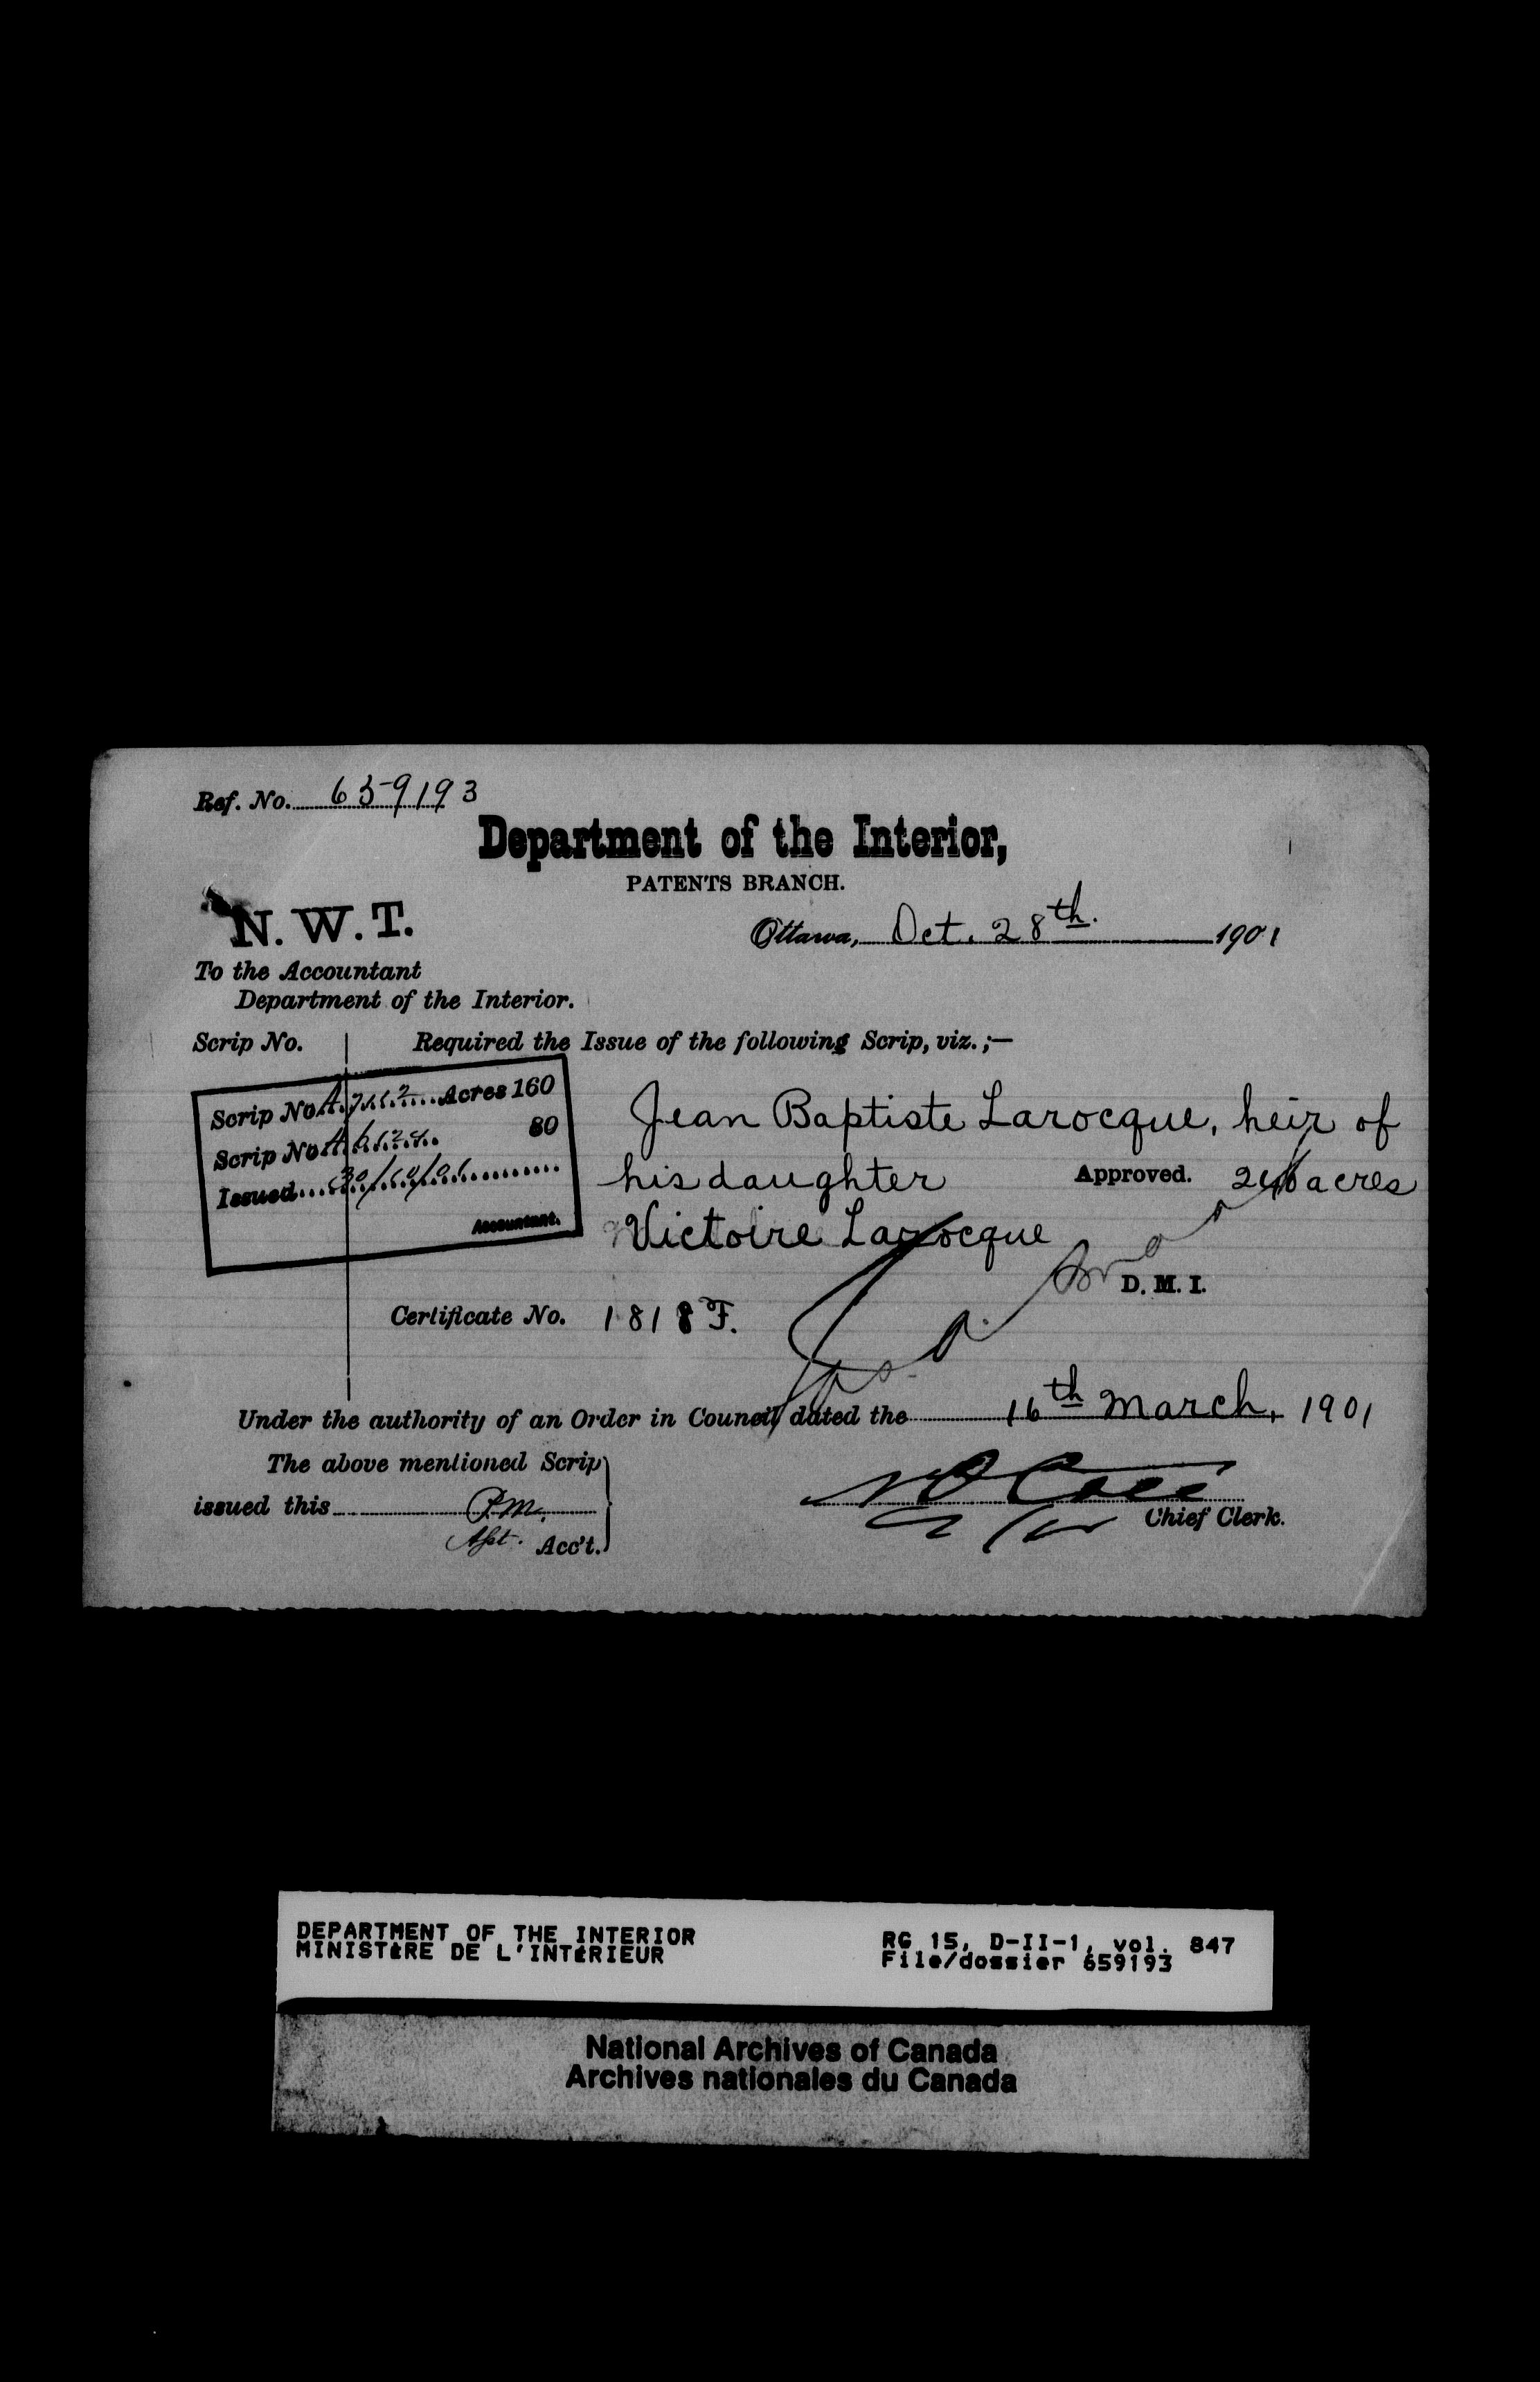 Ref. No. 659193
Department of the Interior,
PATENTS BRANCH.
N. W. T.
Ottawa, Oct. 28th. 1901
To the Accountant
Department of the Interior.
Scrip No. Required the Issue of the following Scrip, viz.;—
Scrip No. A. Acres 160
Scrip No. A. 80
Issued 30/10/01
Accountant.
Jean Baptiste Larocque, heir of
his daughter Approved. 240 acres
Victoire Larocque
D. M. I.
Certificate No. 1818 F.
Under the authority of an Order in Council dated the 16th March, 1901
The above mentioned Scrip
issued this P.M.
Asst. Acc't.
Chief Clerk.
DEPARTMENT OF THE INTERIOR
MINISTÈRE DE L'INTÉRIEUR
RG 15, D-II-1, vol. 847
File/dossier 659193
National Archives of Canada
Archives nationales du Canada